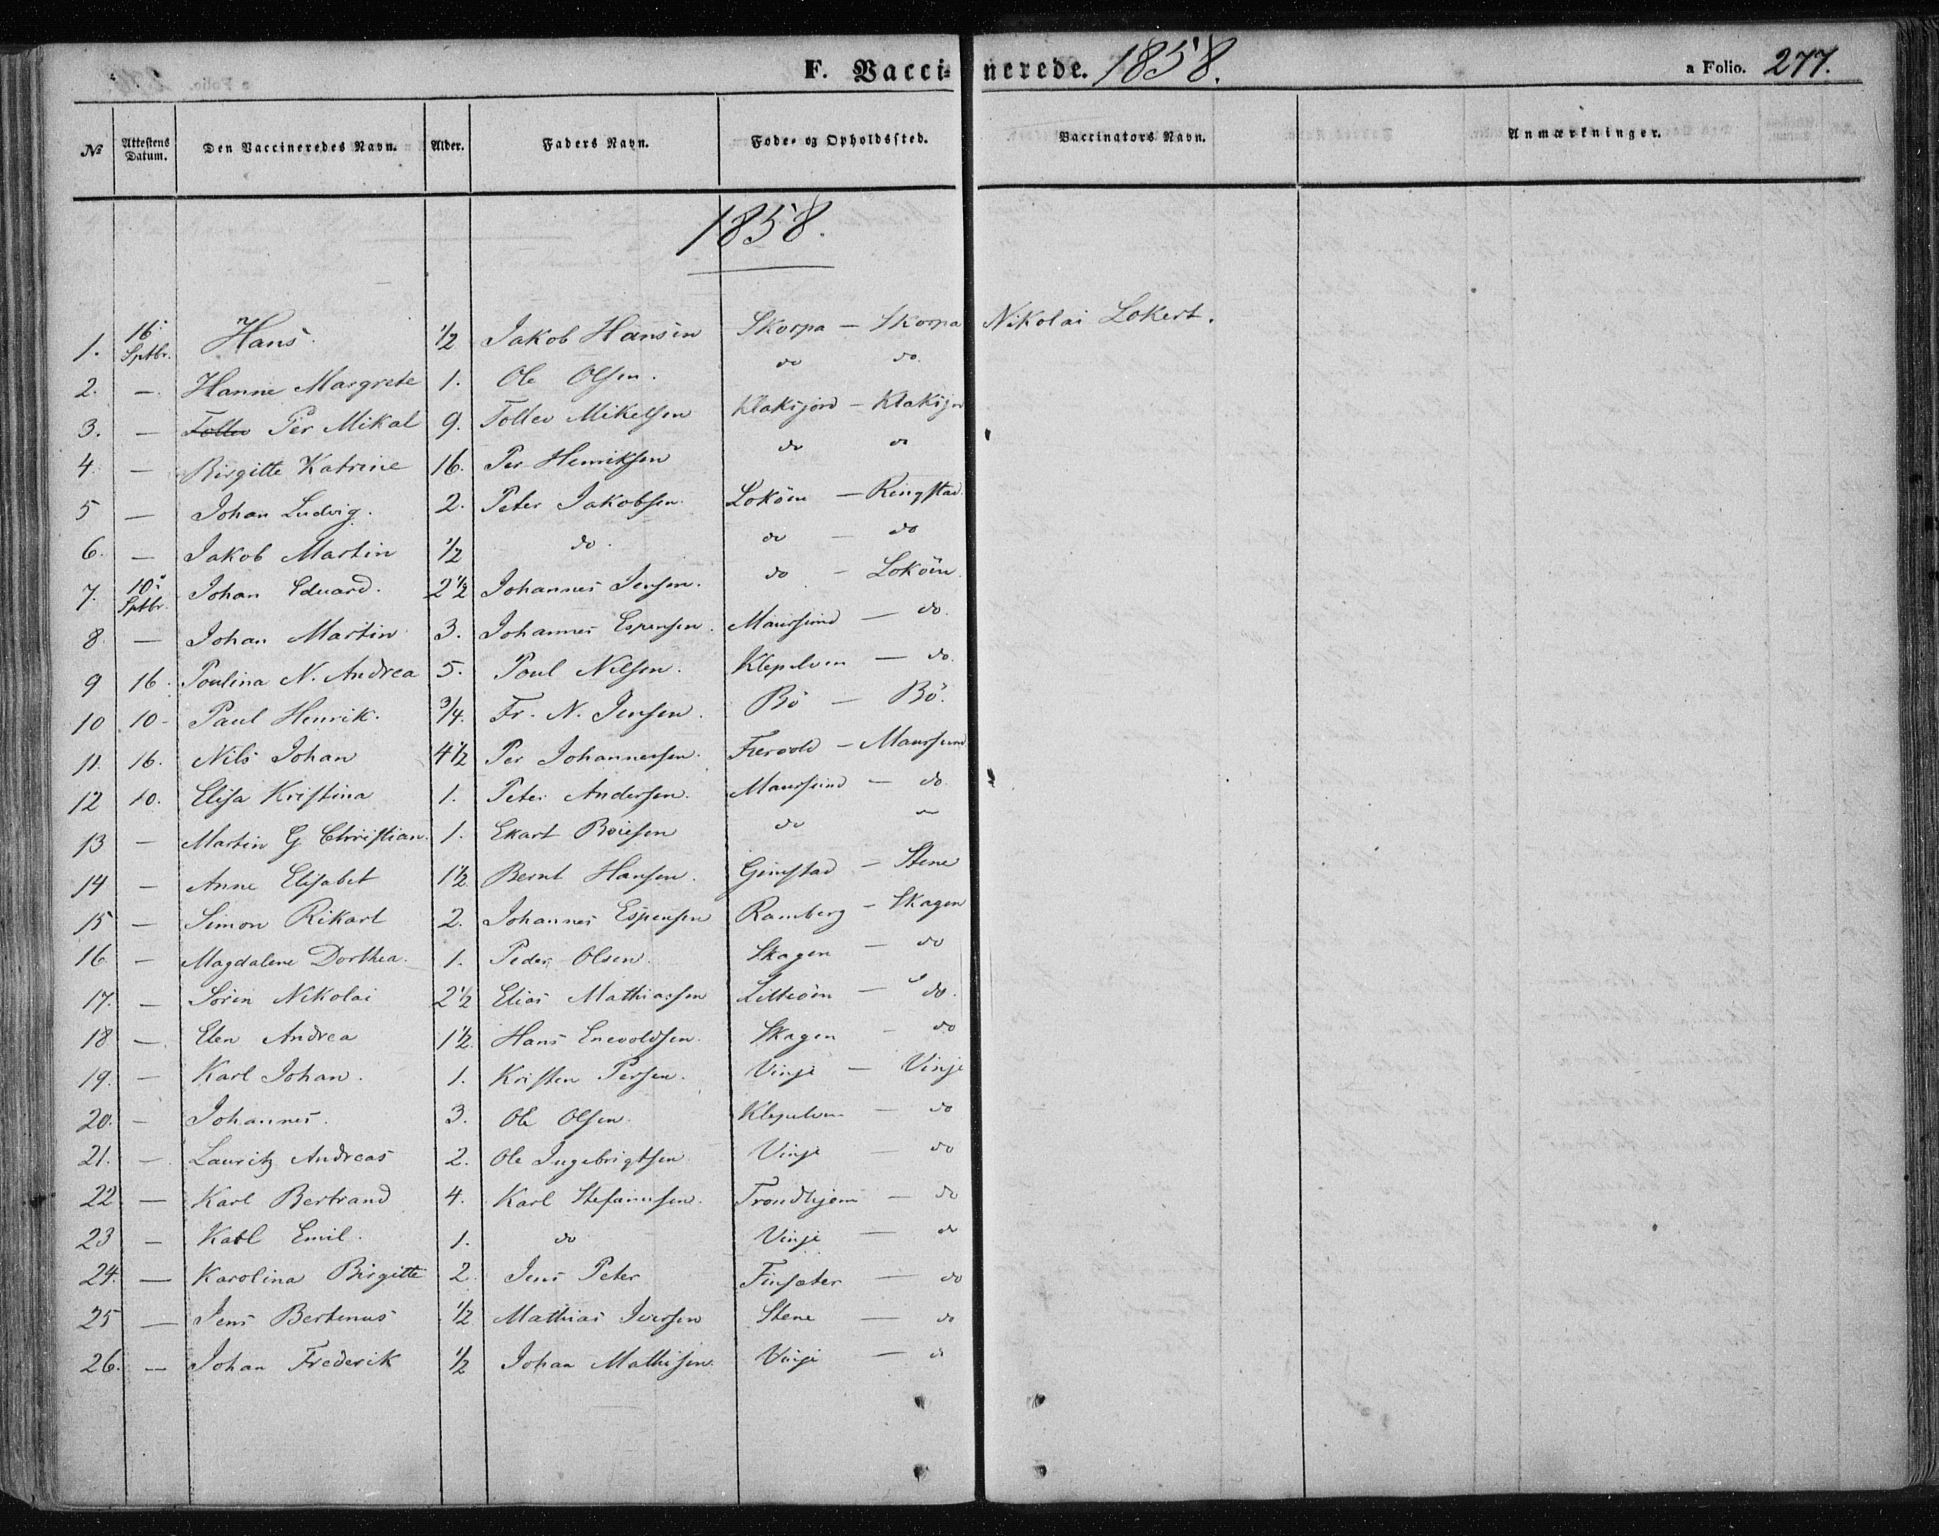 F. Vaccinerede. 1858. a Folio. 277.
№ Attestens Datum. Den Vaccineredes Navn. Alder. Faders Navn. Føde- og Opholdssted. Vaccinators Navn. Anmærkninger.
1858.
1. 16 Sptbr. Hans. 1/2 Jakob Hansen Skorpa — Skorpa Nikolai Lokert.
2. — Hanne Margrete 1. Ole Olsen. do do.
3. — Tollev Per Mikal 9. Tollev Mikelsen Klaksjord — Klaksjor
4. — Birgitte Katrine 16. Per Henriksen do do
5 — Johan Ludvig. 2. Peter Jakobsen Loköen — Ringstad
6. — Jakob Martin 1/2 do. do — do
7. 10 Sptbr. Johan Eduard. 2 1/2 Johannes Jensen. do — Loköen
8 — Johan Martin 3. Johannes Espensen. Maursund — do.
9 16. Poulina N. Andrea 5. Poul Nilsen. Klepelven — do.
10 10 Paul Henrik. 3/4. Fr. N. Jensen. Bö — Bö.
11. 16. Nils Johan 4 1/2 Per Johannessen. — Maursund
12 10. Elisa Kristina 1. Peter Andersen. Maursund — do.
13 — Martin G Christian. 1. Ekart Boiesen do —
14 — Anne Elisabet 1 1/2 Bernt Hansen. Gimstad — Stene
15 — Simon Rikart 2. Johannes Espensen Ramberg — Skagen
16 — Magdalene Dorthea. 1. Peder Olsen. Skagen — do
17. — Sören Nikolai 2 1/2 Elias Mathiassen Litleöen — do.
18 — Elen Andrea 1 1/2 Hans Enevoldsen. Skagen — do
19. — Karl Johan. 1. Kristen Persen. Vinje — Vinje
20. — Johannes. 3. Ole Olsen. Klepelven — do
21. — Lauritz Andreas 2. Ole Ingebrigtsen Vinje — do
22 — Karl Bertrand 4. Karl Stefanusen. Trondhjem — do
23 — Karl Emil. 1. do Vinje — do
24. — Karolina Birgitte 2. Jens Peter Finsæter — do
25 — Jens Bertinus 1/2 Mathias Iversen Stene — do
26. — Johan Frederik 1/2 Johan Mathisen. Vinje — do